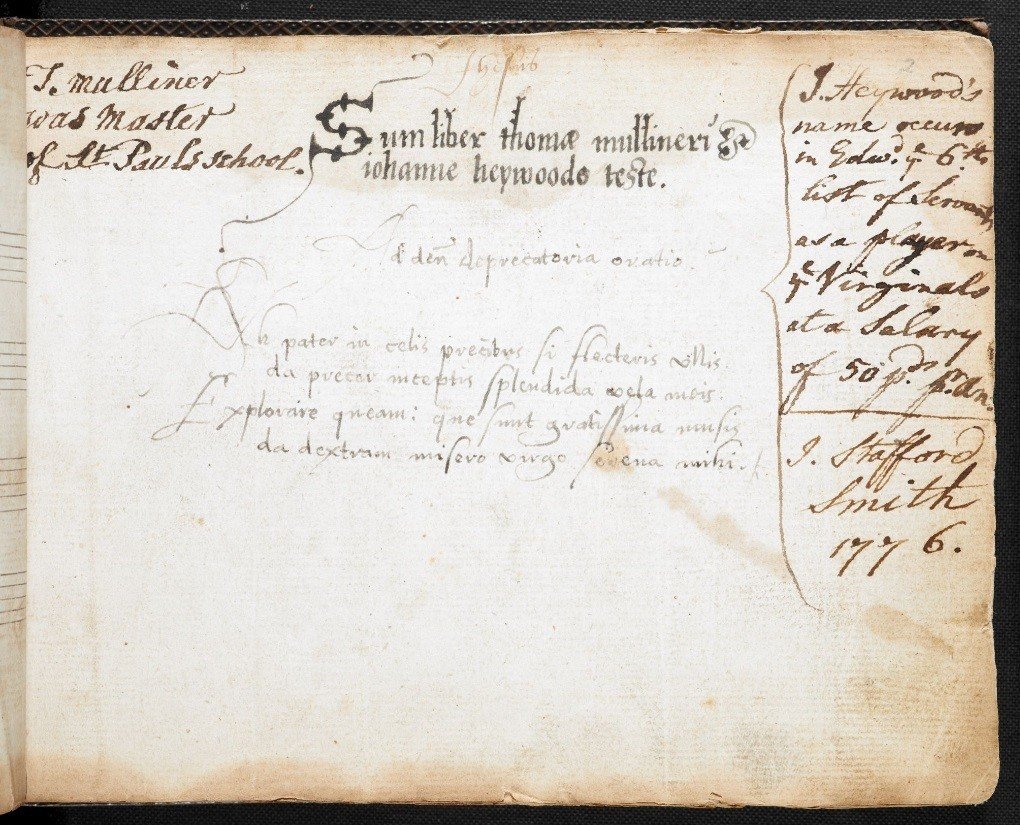 T. mulliner
was Master
of St. Pauls school.
Sum liber thomæ mullineri
iohanne heywoodo teste.
Ad deū deprecatoria oratio
Ah pater in celis precibus si flecteris ullis.
da precor inceptis splendida vela meis.
Explorare queam: que sunt gratissima musis
da dextram misero virgo serena mihi.
J. Heywood's
name occurs
in Edwd. ye 6ths
list of Servants
as a player on
ye Virginals
at a Salary
of 50 pds pr. an.
J. Stafford
Smith
1776.